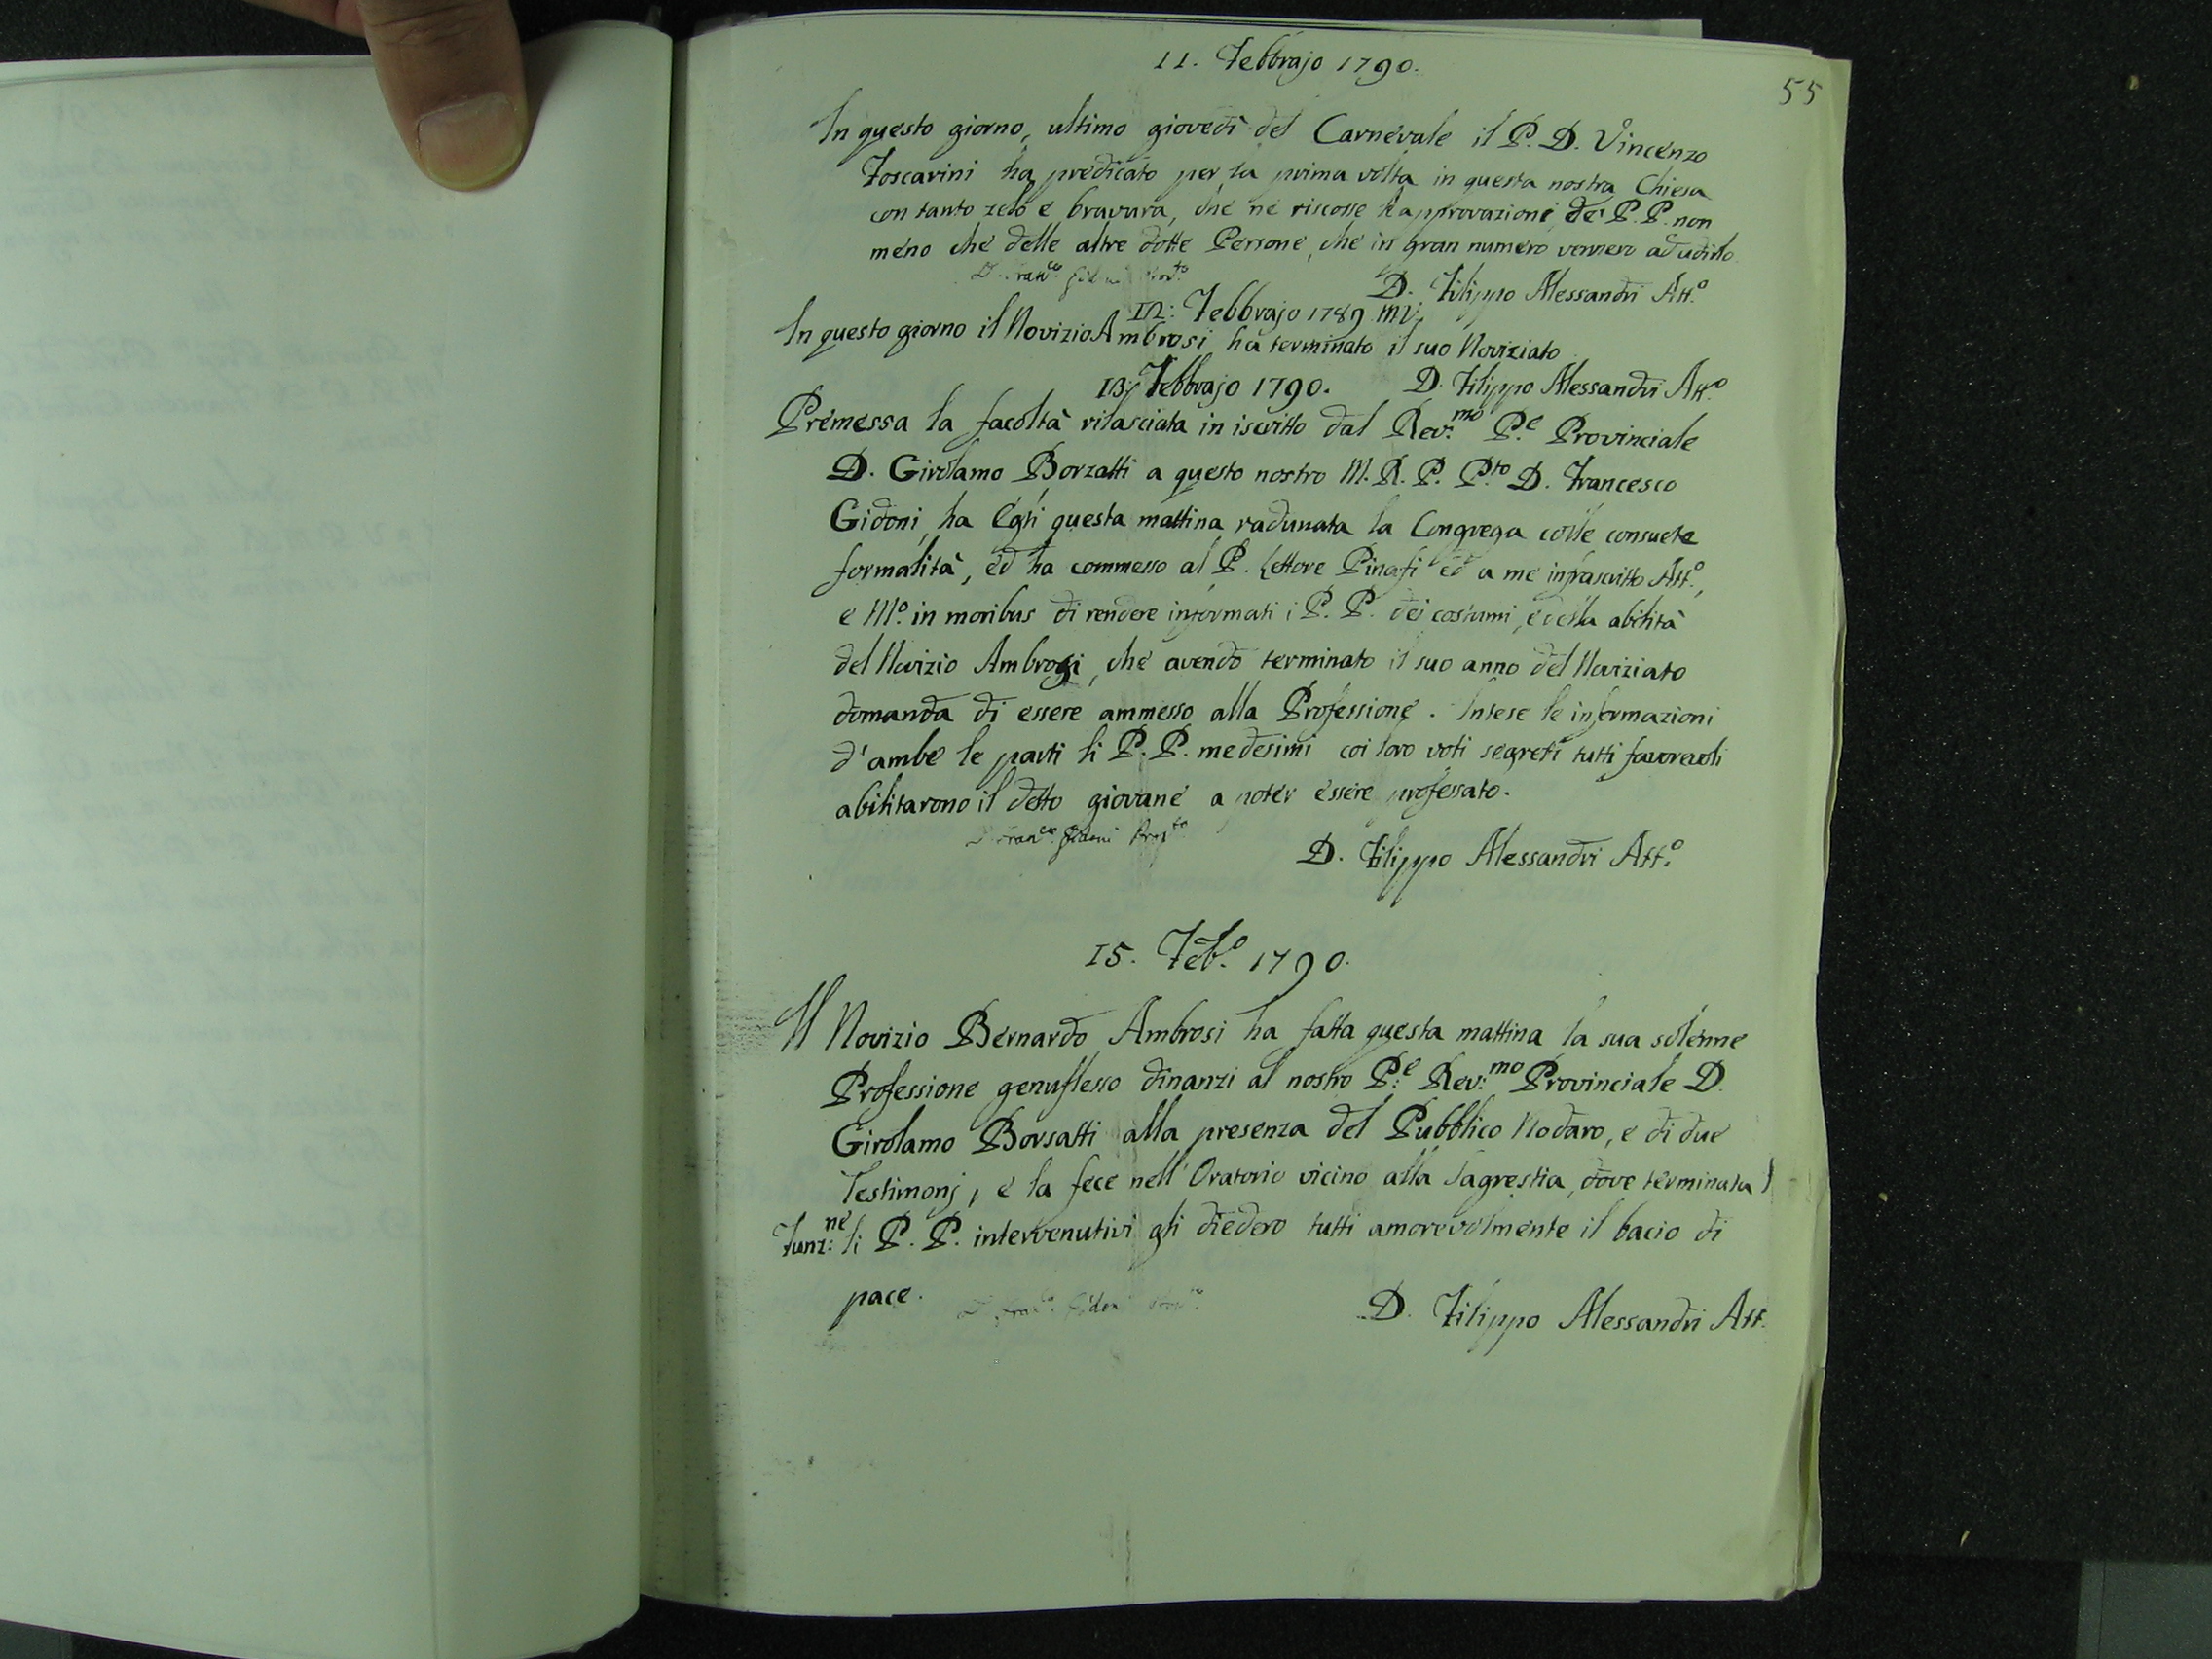 55
11. Febbrajo 1790.
In questo giorno, ultimo giovedì del Carnevale il P. D. Vincenzo
Foscarini ha predicato per la prima volta in questa nostra Chiesa
con tanto zelo e bravura, che ne riscosse l'approvazione de' P. P. non
meno che delle altre dotte Persone, che in gran numero vennero ad udirlo.
D. Fran.co Gidoni Prop.to
D. Filippo Alessandri Att.o
12: Febbrajo 1789 mv.
In questo giorno il Novizio Ambrosi ha terminato il suo Noviziato
D. Filippo Alessandri Att.o
13: Febbrajo 1790.
Premessa la facoltà rilasciata in iscritto dal Rev.mo P.e Provinciale
D. Girolamo Borzatti a questo nostro M. R. P. P.to D. Francesco
Gidoni, ha Egli questa mattina radunata la Congrega colle consuete
formalità, ed ha commesso al P. Lettore ed a me infrascritto Att.o,
e M.o in moribus di rendere informati i P. P. dei costumi, e della abilità
del Novizio Ambrosi, che avendo terminato il suo anno del Noviziato
domanda di essere ammesso alla Professione. Intese le informazioni
d'ambe le parti li P. P. medesimi coi loro voti segreti tutti favorevoli
abilitarono il detto giovane a poter essere professato.
D. Fran.co Gidoni Prop.to
D. Filippo Alessandri Att.o
15. Feb.o 1790.
Il Novizio Bernardo Ambrosi ha fatta questa mattina la sua solenne
Professione genuflesso dinanzi al nostro P.e Rev.mo Provinciale D.
Girolamo Borsatti alla presenza del Pubblico Nodaro, e di due
Testimonj, e la fece nell'Oratorio vicino alla Sagrestia, dove terminata l
Funz:ne li P. P. intervenutivi gli diedero tutti amorevolmente il bacio di
pace.
D. Fran.co Gidoni Prop.to
D. Filippo Alessandri Att.